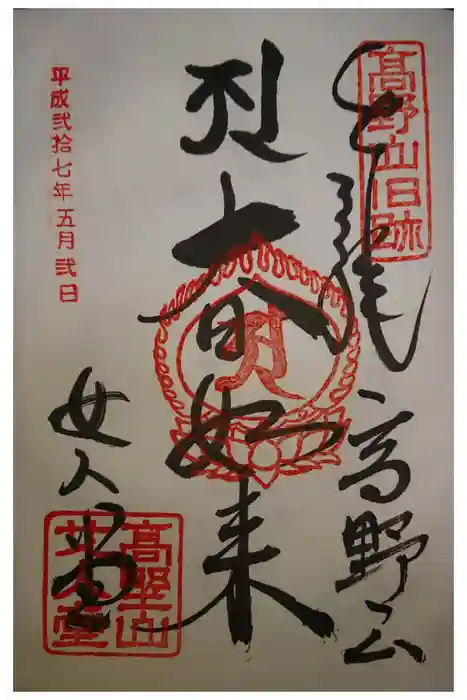 髙野山旧跡
奉拝 高野山
大日如来
女人堂
髙埜山
女人堂
平成弐拾七年五月弐日